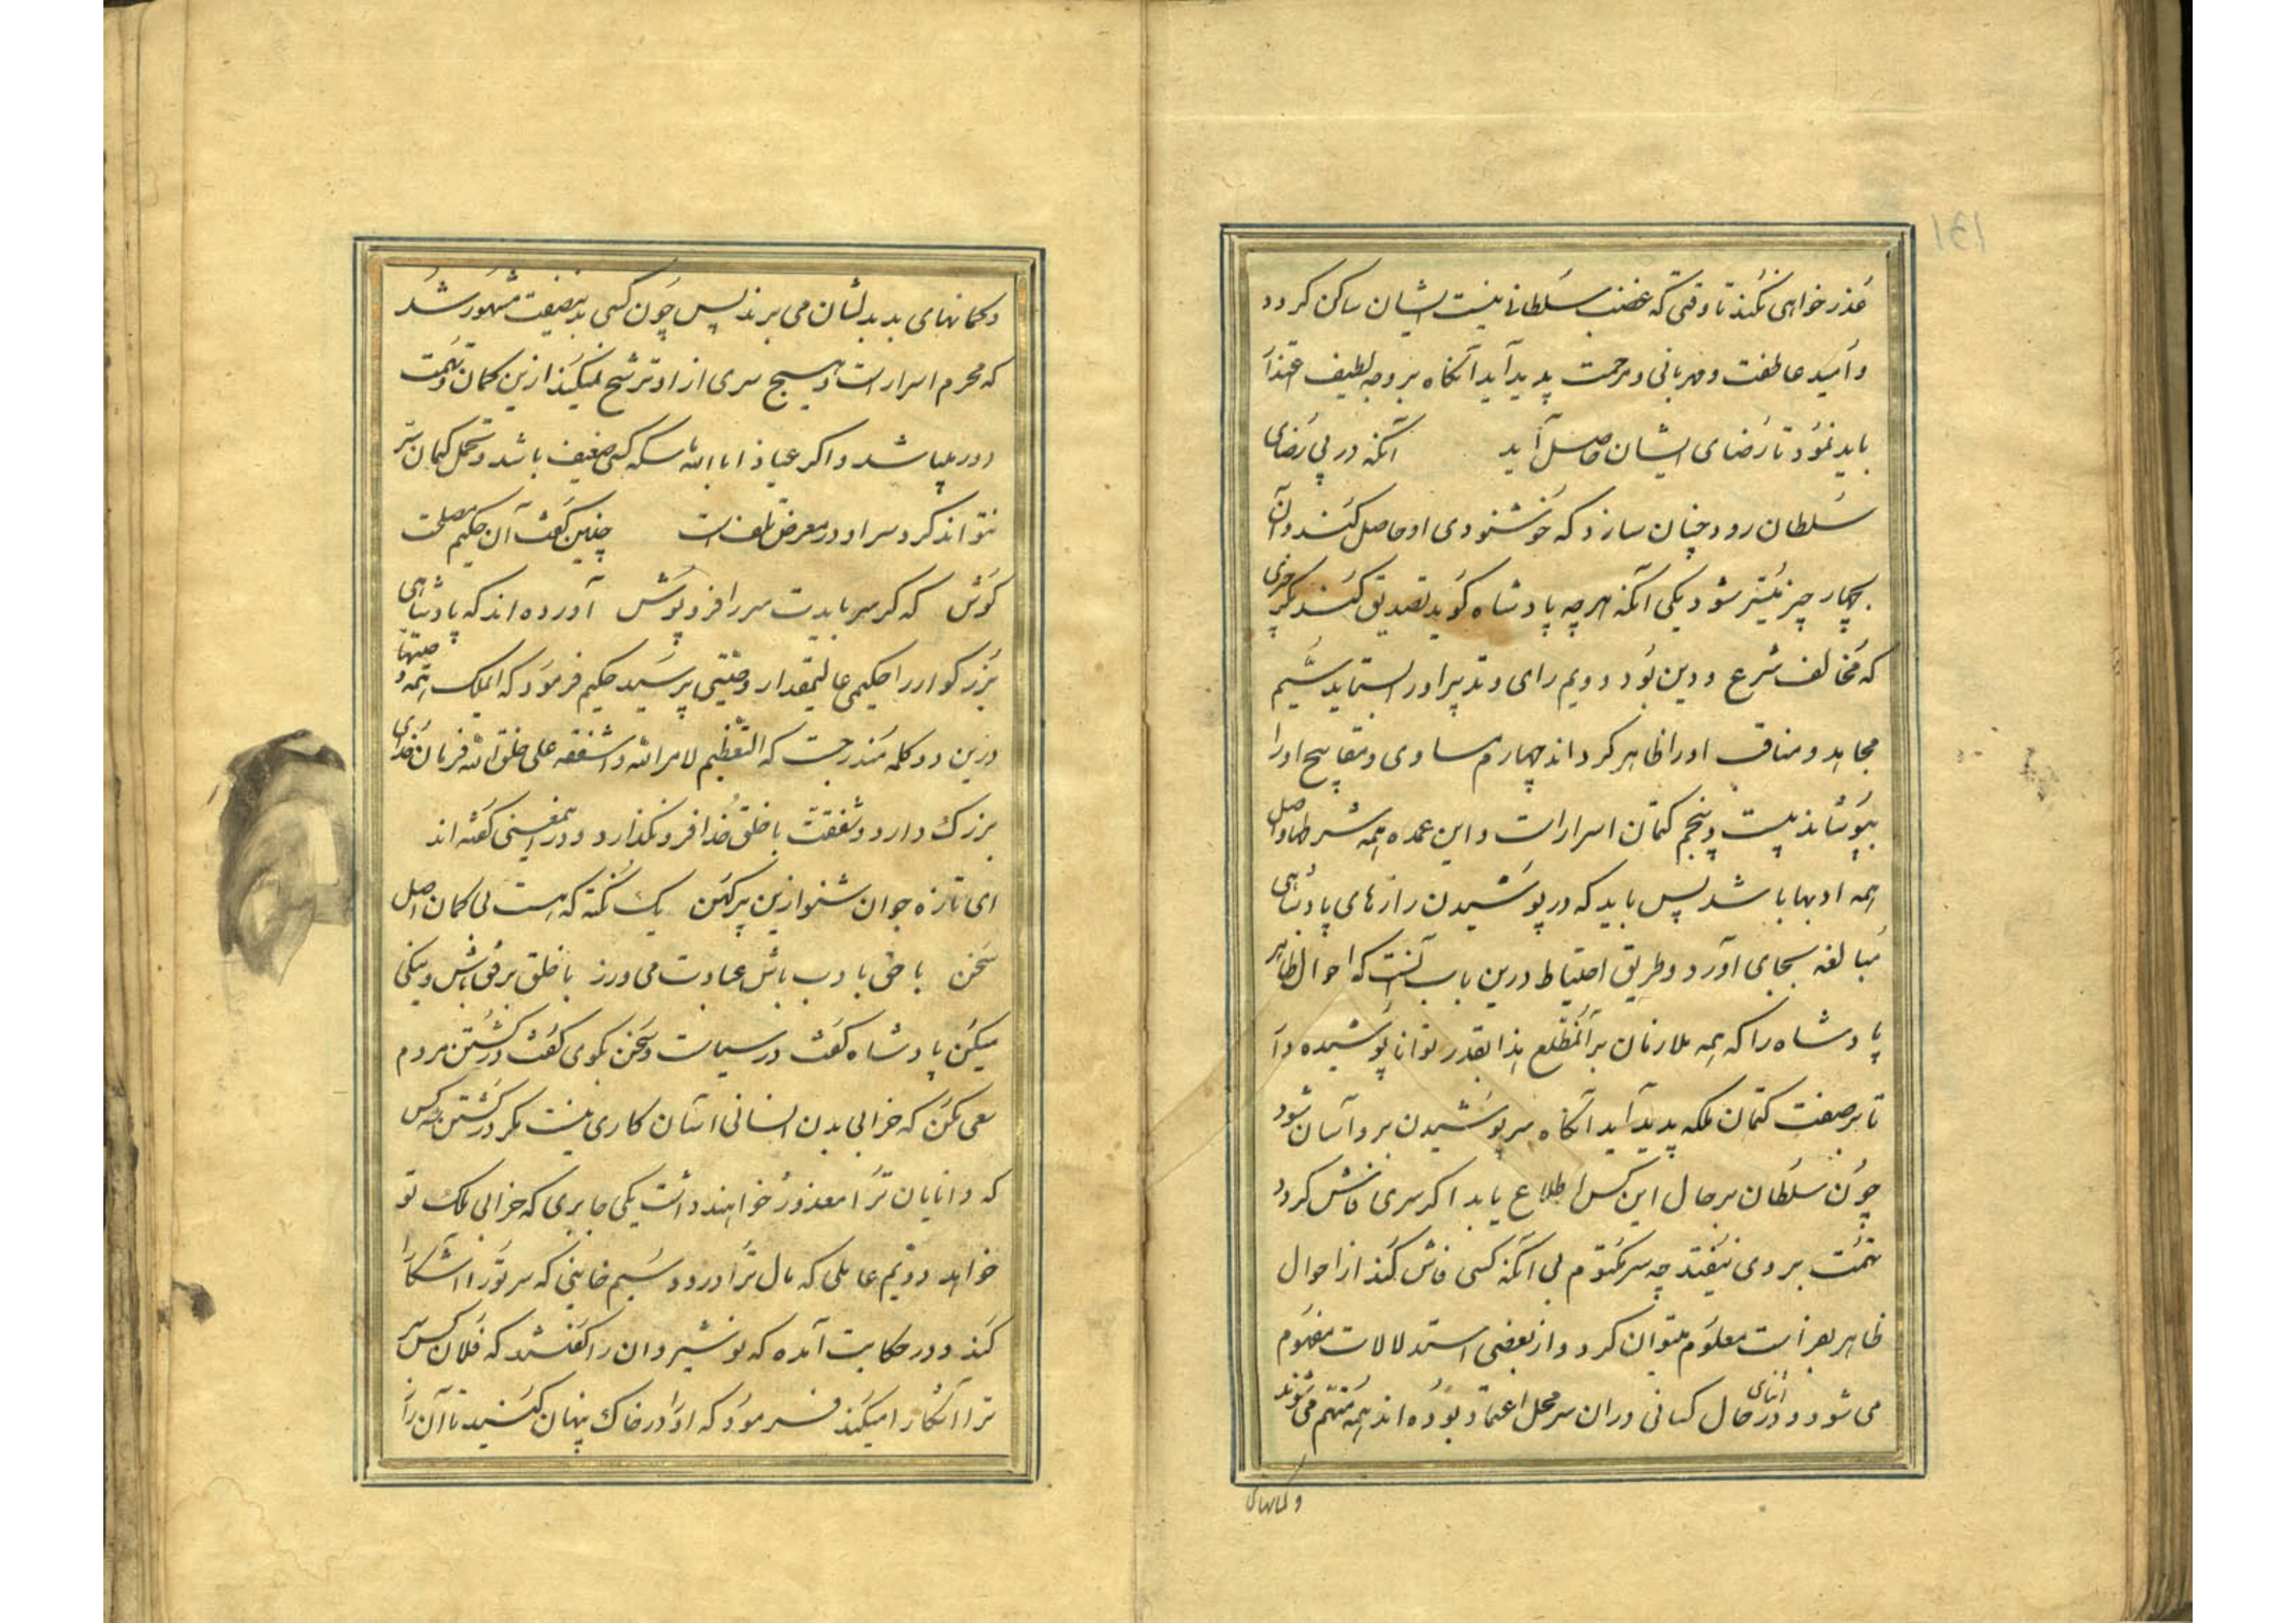 عذرخواهی نکند تا وقتی که غضب سلطان نسبت ایشان ساکن گردد
و امید عاطفت و مهربانی و مرحمت پدید آید آنکاه بر وجه لطیف اعتذار
باید نمود تا رضای ایشان حاصل آید آنکه در پی رضای
سلطان رود چنان سازد که خوشنودی او حاصل کند و آن
بچهار چیز میسر شود یکی آنکه هر چه پادشاه کوید تصدیق کند مکر چیزی
که مخالف شرع و دین بود دویم رای و تدبیر او را بستاید سیم
محامد و مناقب او را ظاهر کرداند چهارم مساوی و مقابح او را
بپوشاند بیست و پنجم کتمان اسرار است و این عمده همه شرطها و اصل
همه ادبها باشد پس باید که در پوشیدن رازهای پادشاهی
مبالغه بجای آورد و طریق احتیاط درین باب آنست که احوال ظاهر
پادشاه را که همه ملازمان بر آن مطلع اند بقدر توانا پوشیده دا
تا بر صفت کتمان ملکه پدید آید آنکاه سر پوشیدن برو آسان شود
چون سلطان بر حال این کس اطلاع یابد اکر سری فاش کردد
تهمت بر وی نیفتد چه سر مکتوم بی آنکه کسی فاش کند از احوال
ظاهر بفراست معلوم میتوان کرد و از بعضی استدلالات مفهوم
می شود و در اثنای حال کسانی در آن سر محل اعتماد بوده اند همه متهم می شوند
و کمانهای
و کمانهای بد بدیشان می برند پس چون کسی بدینصفت مشهور شد
که محرم اسرار است و هیچ سری از او ترشح نمیکند ازین کمان و تهمت
دور میباشد و اکر عیاذا بالله تماسکه کسی ضعیف باشد و تحمل کتمان سر
نتواند کرد سر او در معرض تلف است چنین کفت آن حکیم مصلحت
کوش که کر سر بایدت سر را فرو پوش آورده اند که پادشاهی
بزرکوار را حکیمی عالیمقدار وصیتی پرسید حکیم فرمود که ایملک همه وصیتها
درین دو کلمه مندرجست که التعظیم لامر الله و الشفقه علی خلق الله فرمان خدای
بزرک دارد و شفقت با خلق خدا فرو نکذارد و در این معنی کفته اند
ای تازه جوان شنو ازین پیر کهن یک نکته که هست بی کمان اصل
سخن با حق بادب باش عبادت می ورز با خلق برفق باش و نیکی
میکن پادشاه کفت در سیاست سخن بکوی کفت در کشتن مردم
سعی مکن که خرابی بدن انسانی آسان کاری نیست مکر در کشتن سه کس
که دانایان ترا معذور خواهند داشت یکی جابری که خرابی ملک تو
خواهد دویم عاملی که مال ترا دزدد سیم خاینی که سر ترا آشکارا
کند و در حکایت آمده که نوشیروان را کفتند که فلان کس سر
ترا آشکارا میکند فرمود که او را در خاک پنهان کنید تا آن را